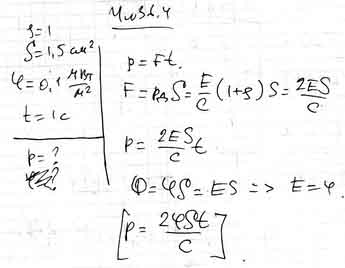 ρ=1
S=1,5 см²
φ=0,1 МВт/м²
t=1c
p=?
p=Ft.
F=p_д S = E/c (1+ρ) S = 2ES/c
p = 2ES/c t
Φ=φS=ES => E=φ.
[p = 2φSt/c].